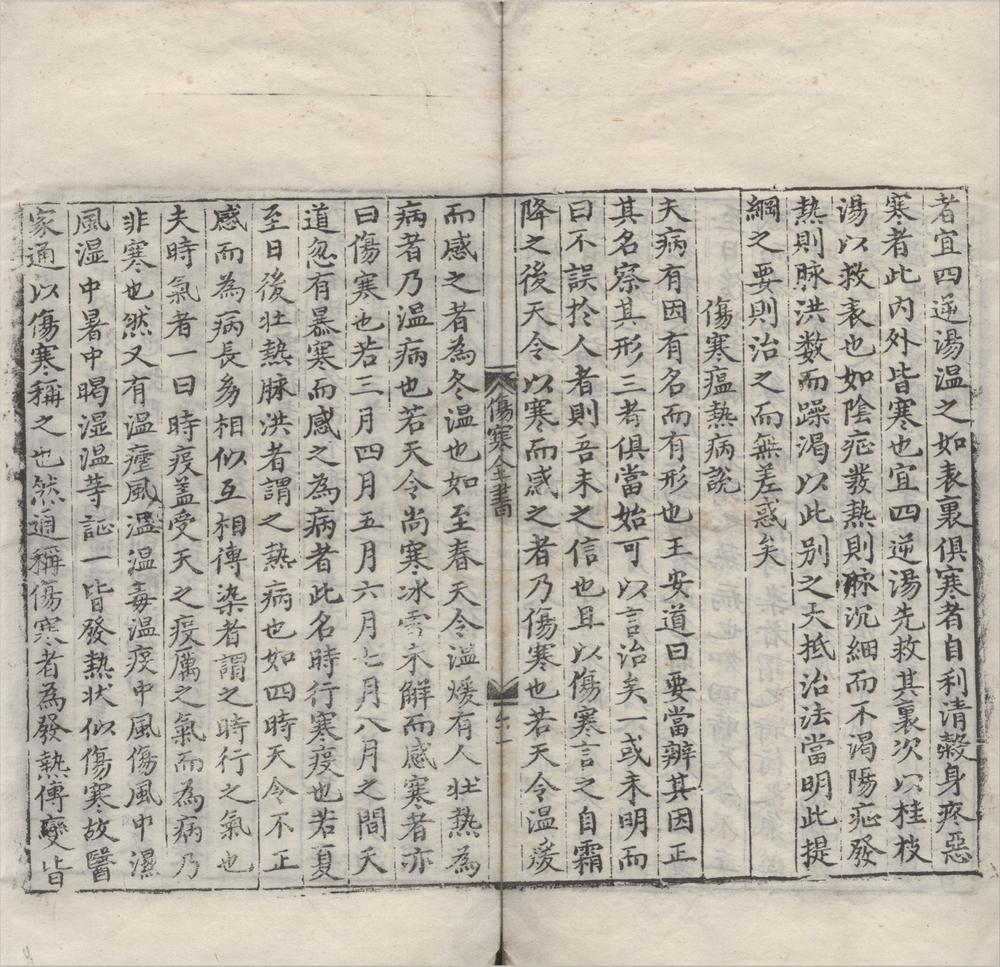 者宜四逆湯温之如表裏俱寒者自利清穀身疼惡
寒者此内外皆寒也宜四逆湯先救其裏次以桂枝
湯以救表也如陰症發熱則脉沉細而不渴陽症發
熱則脉洪数而躁渴以此别之大抵治法當明此提
綱之要則治之而無差惑矣
傷寒瘟熱病説
夫病有因有名而有形也王安道曰要當辨其因正
其名察其形三者俱當始可以言治矣一或未明而
曰不誤於人者則吾未之信也且以傷寒言之自霜
降之後天令以寒而感之者乃傷寒也若天令温煖
傷寒全書
六一
而感之者為冬温也如至春天令温煖有人壮热為
病者乃温病也若天令尚寒冰雪未解而感寒者亦
曰傷寒也若三月四月五月六月七月八月之間天
道忽有暴寒而感之為病者此名時行寒疫也若夏
至日後壮熱脉洪者謂之熱病也如四時天令不正
感而為病長㓜相似互相傳染者謂之時行之氣也
夫時氣者一曰時疫盖受天之疫厲之氣而為病乃
非寒也然又有温瘧風温温毒温疫中風傷風中濕
風湿中暑中暍湿温等証一皆發熱状似傷寒故醫
家通以傷寒稱之也然通稱傷寒者為發熱傳變皆